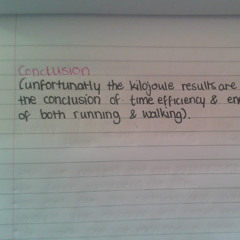 Conclusion
(unfortunatly the kilojoule results are
the conclusion of time efficiency &
of both running & walking).